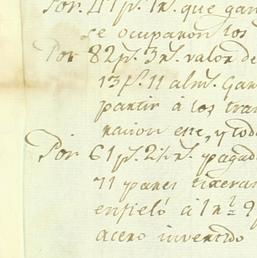 Por. 41 p.s 1 r.l que gan
se ocuparon los
Por 82 p.s 3 r.s valor de
13 f.s 11 alm.s Gar
partir á los tra
racion ese, y tod
Por 61 p.s 2½ r.s pagad
71 pares
á 1 r.l
acero invertido